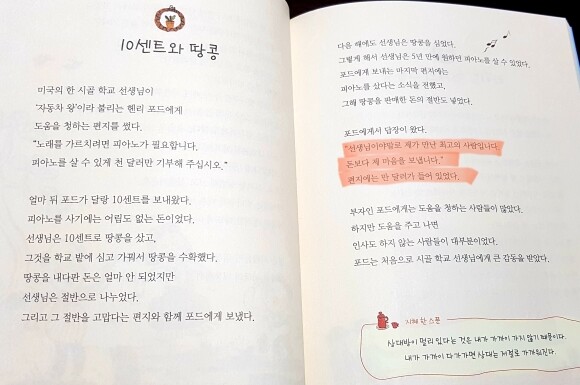 10센트와 땅콩
미국의 한 시골 학교 선생님이
'자동차 왕'이라 불리는 헨리 포드에게
도움을 청하는 편지를 썼다.
"노래를 가르치려면 피아노가 필요합니다.
피아노를 살 수 있게 천 달러만 기부해 주십시오."
얼마 뒤 포드가 달랑 10센트를 보내왔다.
피아노를 사기에는 어림도 없는 돈이었다.
선생님은 10센트로 땅콩을 샀고,
그것을 학교 밭에 심고 가꿔서 땅콩을 수확했다.
땅콩을 내다판 돈은 얼마 안 되었지만
선생님은 절반으로 나누었다.
그리고 그 절반을 고맙다는 편지와 함께 포드에게 보냈다.
다음 해에도 선생님은 땅콩을 심었다.
그렇게 해서 선생님은 5년 만에 원하던 피아노를 살 수 있었다.
포드에게 보내는 마지막 편지에는
피아노를 샀다는 소식을 전했고,
그해 땅콩을 판매한 돈의 절반도 넣었다.
포드에게서 답장이 왔다.
"선생님이야말로 제가 만난 최고의 사람입니다.
돈보다 제 마음을 보냅니다."
편지에는 만 달러가 들어 있었다.
부자인 포드에게는 도움을 청하는 사람들이 많았다.
하지만 도움을 주고 나면
인사도 하지 않는 사람들이 대부분이었다.
포드는 처음으로 시골 학교 선생님에게 큰 감동을 받았다.
지혜 한 스푼
상대방이 멀리 있다는 것은 내가 가까이 가지 않기 때문이다.
내가 가까이 다가가면 상대는 저절로 가까워진다.